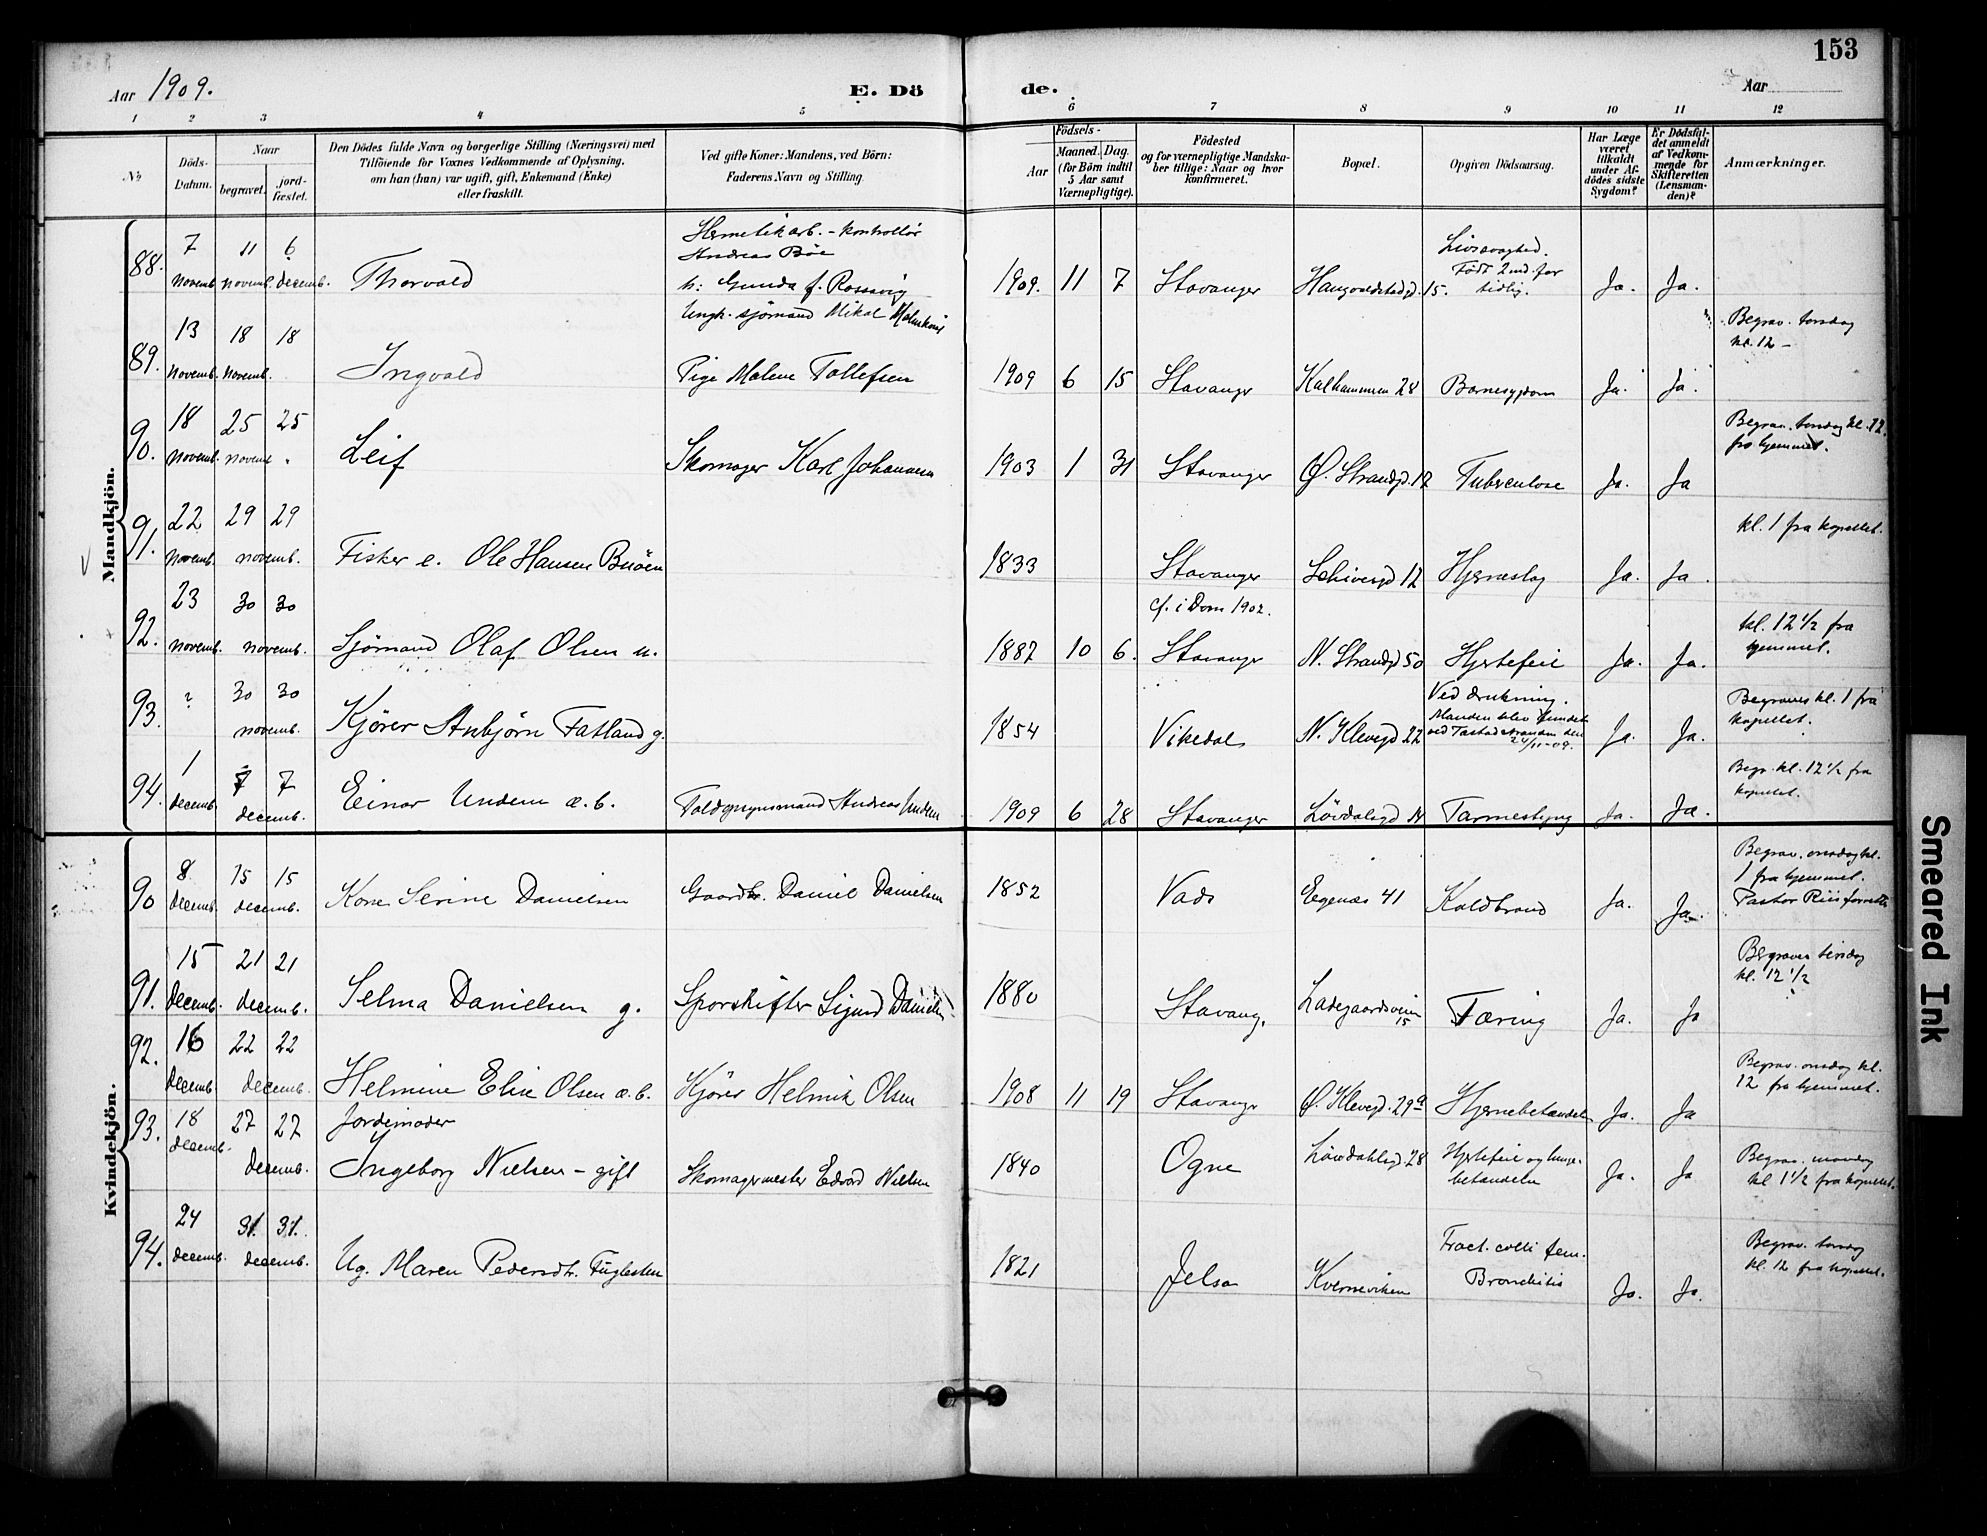 153
Aar 1909.
E. Dö de.
Aar
1 2 3 4 5 6 7 8 9 10 11 12
No
Döds-Datum.
Naar
begravet.
jord-fæstet.
Den Dödes fulde Navn og borgerlige Stilling (Næringsvei) med
Tilföiende for Voxnes Vedkommende af Oplysning,
om han (hun) var ugift, gift, Enkemand (Enke)
eller fraskilt.
Ved gifte Koner: Mandens, ved Börn:
Faderens Navn og Stilling.
Födsels-
Aar
Maaned. Dag.
(for Börn indtil
5 Aar samt
Værnepligtige).
Födested
og for værnepligtige Mandska-
ber tillige: Naar og hvor
konfirmeret.
Bopæl.
Opgiven Dödsaarsag.
Har Læge
været
tilkaldt
under Af-
dödes sidste
Sygdom?
Er Dödsfal-
det anmeldt
af Vedkom-
mende for
Skifteretten
(Lensman-
den)?
Anmærkninger.
Mandkjön.
88. 7 novemb. 11 novemb. 6 decemb. Thorvald
Hermetikarb. - kontrollør
Andreas Bøe
h: Gunda f. Rossavig
1909. 11 7 Stavanger Haugvaldstadgd. 15.
Livssvaghed.
Født 2 md. for
tidlig.
Ja. Ja.
89. 13 novemb. 18 novemb. 18 Ingvald
Ungk. sjømand Mikal
Pige Malene Tollefsen
1909 6 15 Stavanger Kalhammeren 28 Barnesygdom Ja. Ja.
Begrav. torsdag
kl. 12 -
90. 18 novemb. 25 novemb 25 " Leif
Skomager Karl Johannesen
1903 1 31 Stavanger Ø. Strandgd. 12 Tuberculose Ja. Ja
Begrav. torsdag kl. 12
fra hjemmet.
91. 22 novemb. 29 29 novemb. Fisker e. Ole Hansen Buøen
1833 Stavanger Schivesgd 12 Hjerneslag Ja. Ja.
kl. 1 fra kapellet.
92. 23 novemb. 30 30 novemb. Sjømand Olaf Olsen u.
cf. i Dom 1902.
1887 10 6. Stavanger N. Strandgd 50 Hjertefeil Ja. Ja.
kl. 12 1/2 fra
hjemmet.
93. ? 30 30 novemb. Kjører Anbjørn Fatland g.
1854 Vikedal N. Klevegd 22
Ved drukning.
Manden blev fundet
ved Tastadstranden den
24/11-09.
Ja. Ja.
Begraves kl. 1 fra
kapellet.
94. 1 decemb. 7 7 decemb. Einar Undem æ.b.
Toldopsynsmand Andreas Undem
1909 6 28 Stavanger Løvdalsgd 14 Tarmeslyng Ja. Ja.
Begr. kl. 12 1/2 fra
kapellet.
Kvindekjön.
90 8 decemb. 15 15 decemb. Kone Serine Danielsen
Gaardbr. Daniel Danielsen
1852 Vads Egenæs 41 Koldbrand Ja. Ja.
Begrav. onsdag kl.
1 fra hjemmet.
Pastor Riis forrettet
91. 15 decemb. 21 21 decemb. Selma Danielsen g.
Sporskifter Sigurd Danielsen
1880 Stavang. Ladegaardsveien 15 Tæring Ja. Ja
Begraves tirsdag
kl. 12 1/2
92. 16 decemb. 22 22 decemb. Helmine Elise Olsen æ.b.
Kjører Helmik Olsen
1908 11 19 Stavanger Ø. Klevegd. 29a Hjernebetændelse Ja. Ja
Begrav. onsdag kl.
12 fra hjemmet.
93. 18 decemb. 27 27 decemb.
Jordemoder
Ingeborg Nielsen - gift
Skomagermester Edvard Nielsen
1840 Ogne Løvdahlsgd 28
Hjertefeil og lunge-
betændelse
Ja. Ja
Begrav. mandag
kl 1 1/2 fra kapellet.
94. 24 decemb. 31. 31. decemb. Ug. Maren Pedersdtr. Fuglesten
1821 Jelsa Kverneviken
Fract. colli fem.
Bronchitis
Ja. Ja.
Begrav. torsdag
kl. 12 fra kapellet.
Smeared Ink